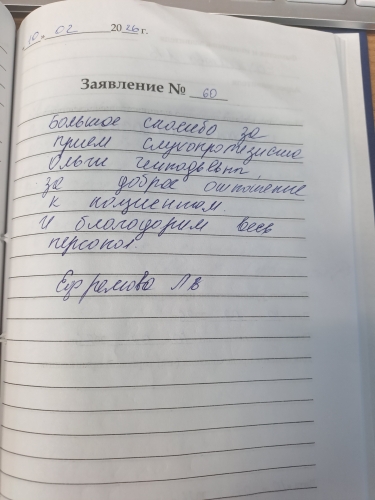 10. 02 2026 г.
Заявление № 60
Большое спасибо за
прием слухопротезиста
Ольги Генадьевны,
за доброе отношение
к пациентам.
И благодарим весь
персонал.
Ефремова Л В